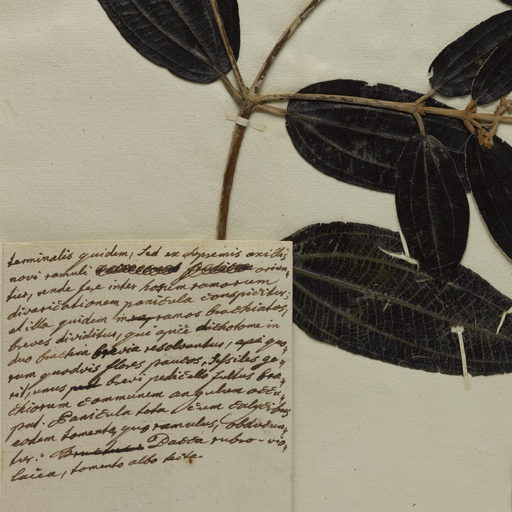 terminalis quidem, sed ex supremis axillis
novi ramuli orien,
tur, unde fere inter horum ramorum
divaricationem panicula conspicitur;
et illa quidem in ramos brachiatos,
breves dividitur, qui apice dichotome in
duo brachia brevia resolvuntur, apex quo,
rum quodvis flores paucos, sessiles ge,
rit, unus brevi pedicello fultus bra,
chiorum communem angulum occu,
pat. Panicula tota cum calycibus
eodem tomento, quo ramulus, obductun,
tur. Bacca rubro-vio,
lacea, tomento albo tecta.